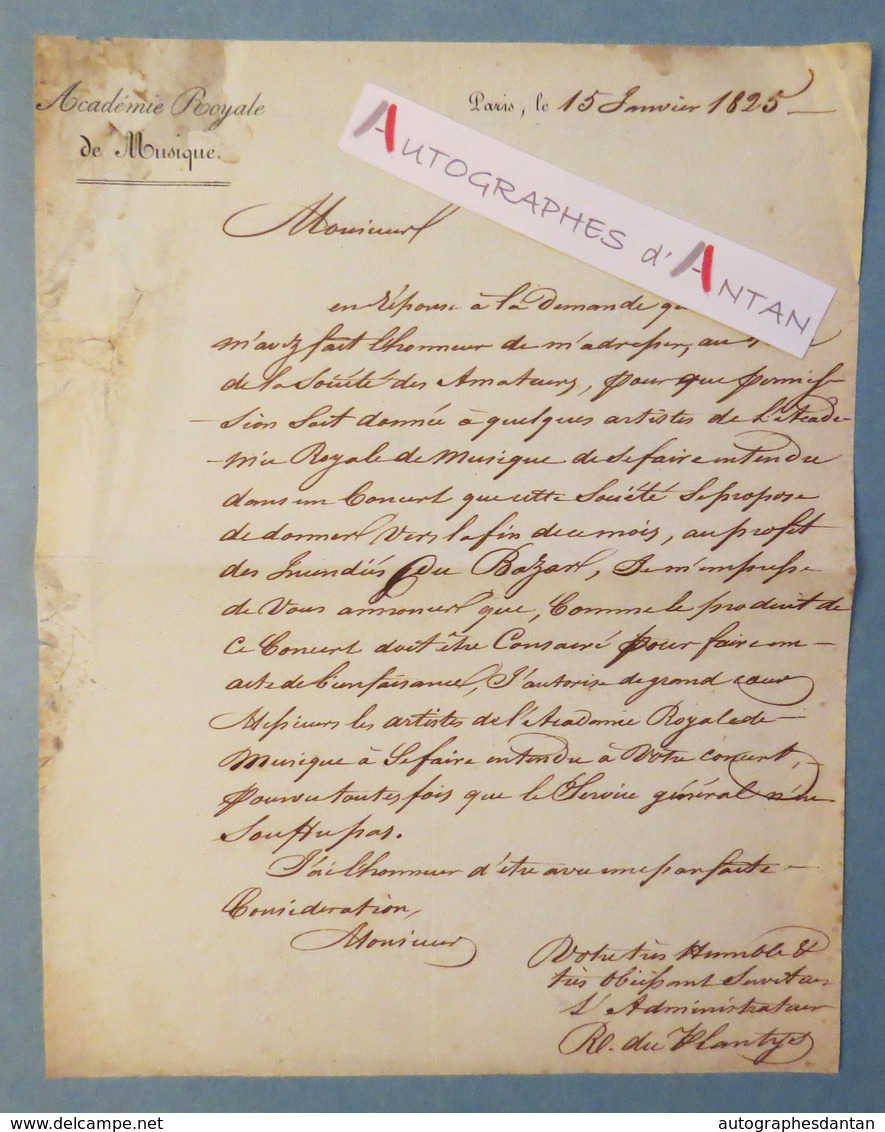 Académie Royale
de Musique.
Paris, le 15 Janvier 1825
AUTOGRAPHES d'ANTAN
Monsieur
en réponse à la Demande
m'avez fait l'honneur de m'adresser, au
de la Société des Amateurs, pour que permis-
sion soit donnée à quelques artistes de L'Acadé-
mie Royale de Musique de se faire entendre
dans un Concert que cette Société se propose
de donner vers la fin de ce mois, au profit
des Incendiés du Bazar, Je m'empresse
de Vous annoncer que, Comme le produit de
ce Concert doit être Consacré pour faire un
acte de bienfaisance, J'autorise de grand cœur
Messieurs les artistes de l'Académie Royale de
Musique à se faire entendre à Votre concert,
pourvu toutes fois que le Service général n'en
souffre pas.
J'ai l'honneur d'être avec une parfaite
Consideration,
Monsieur
Votre très Humble &
très obéissant Serviteur
L'Administrateur
R. du Plantys
delcampe.net
autographesdantan